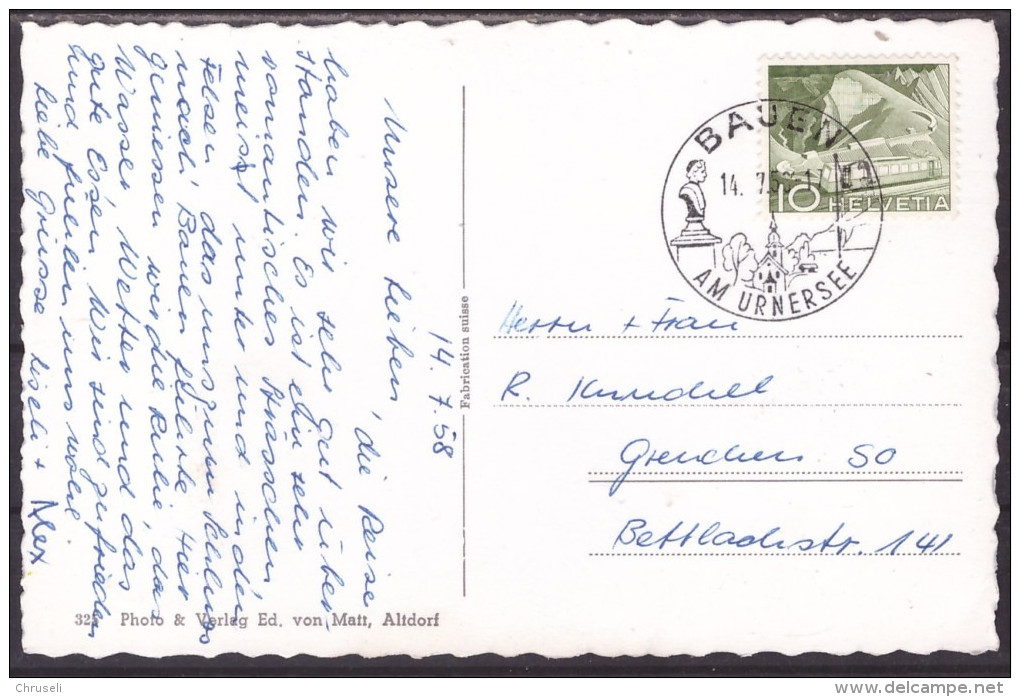 14.7.58
Unsere Lieben, die Reise
haben wir sehr gut über-
standen. Es ist ein sehr
romantisches Strässchen
meist unter und in den
Felsen, das uns zum Schluss
nach Bauen führte. Hier
geniessen wir die Ruhe, das
Wasser, Wetter und das
gute Essen. Wir sind zufrieden
und fühlen uns wohl.
Liebe Grüsse Liseli + Alex
325 Photo & Verlag Ed. von Matt, Altdorf
Fabrication suisse
BAUEN
14. 7.5
AM URNERSEE
10 HELVETIA
Herrn + Frau
R. Kunchel
Grenchen SO
Bettlachstr. 141
Chruseli
delcampe.net